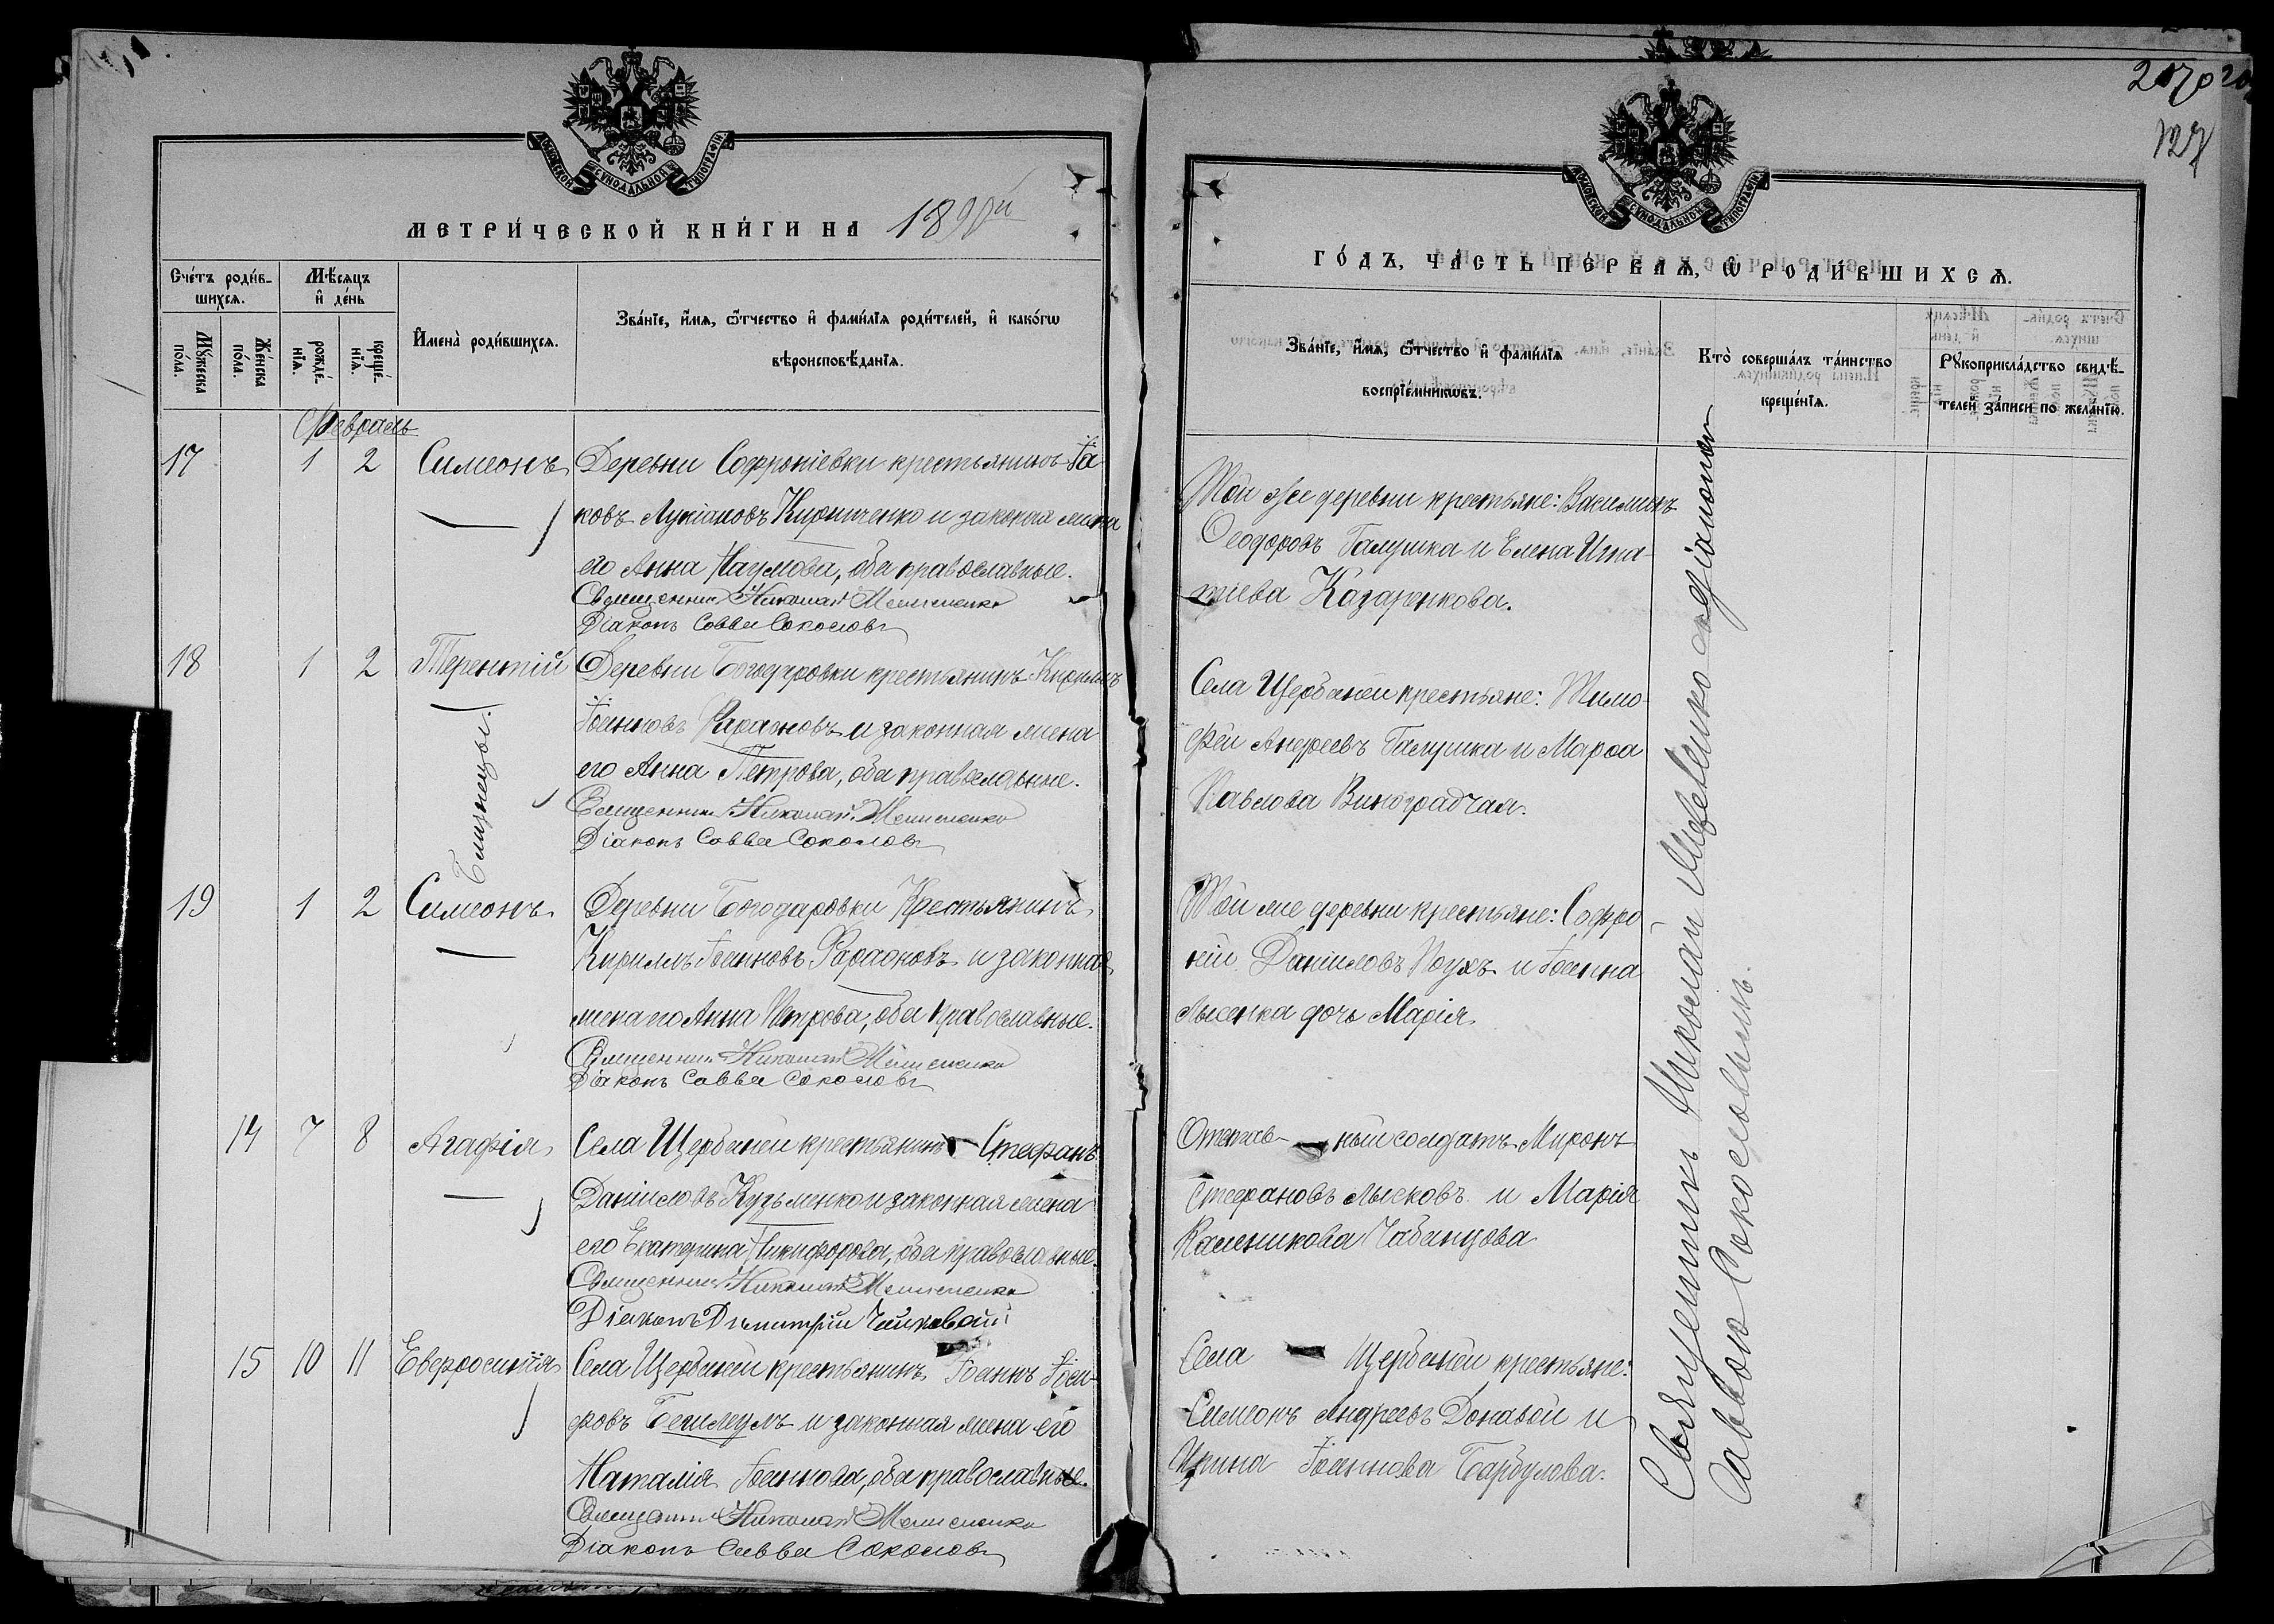 МОСКОВСКОЙ СѴНОДАЛЬНОЙ ТИПОГРАФІИ
МЕТРИ́ЧЕСКОЙ КНИ́ГИ НА 1890й
Сче́тъ роди́в-
шихсѧ.
Мѣ́сѧцъ
и҆ де́нь
Мꙋ́жеска
по́ла.
Же́нска
по́ла.
рожде́-
нїѧ.
креще́-
нїѧ.
И҆мена̀ роди́вшихсѧ.
Зва́нїе, и҆́мѧ, ѻ҆́тчество и҆ фами́лїѧ роди́телей, и҆ како́гѡ
вѣроисповѣ́данїѧ.
Февраль
17 1 2 Симеонъ Деревни Софроніевки крестьянинъ Іа
ковъ Лукіановъ Кириченко и законная жена
его Анна Наумова, оба православные.
Священникъ Николай
Діаконъ Савва Соколовъ
18 1 2 Терентій Деревни Богодаровки крестьянинъ Кириллъ
Іоанновъ Фараоновъ и законная жена
его Анна Петрова, оба православные.
Священникъ Николай
Діаконъ Савва Соколовъ
Близнецы.
19 1 2 Симеонъ Деревни Богодаровки Крестьянинъ
Кириллъ Іоанновъ Фараоновъ и законная
жена его Анна Петрова, оба православные.
Священникъ Николай
Діаконъ Савва Соколовъ
14 7 8 Агафія Села Щербаней крестьянинъ Стефанъ
Даніиловъ Кузьменко и законная жена
его Екатерина Никифорова, оба православные.
Священникъ Николай
Діаконъ Димитрій
15 10 11 Евфросинія Села Щербаней крестьянинъ Іоаннъ Іоси-
фовъ и законная жена его
Наталія Іоаннова, оба православные.
Священникъ Николай
Діаконъ Савва Соколовъ
127
МОСКОВСКОЙ СѴНОДАЛЬНОЙ ТИПОГРАФІИ
ГО́ДЪ, ЧА́СТЬ ПЕ́РВАѦ, Ѽ РОДИ́ВШИХСѦ.
Зва́нїе, и҆́мѧ, ѻ҆́тчество и҆ фами́лїѧ
воспрїе́мникѡвъ.
Кто̀ соверша́лъ та́инство
креще́нїѧ.
Рꙋкоприкла́дство свидѣ́-
телей за́писи по жела́нїю.
Той же деревни крестьяне: Василискъ
Ѳеодоровъ Галушка и Елена Игна-
тиева Казаренкова.
Села Щербаней крестьяне: Тимо-
фей Андреевъ Галушка и Марѳа
Павлова Виноградчая.
Той же деревни крестьяне: Софро-
ній Даніиловъ и Іоанна
Лысенка дочь Марія
Отстав- ный солдатъ Миронъ
Стефановъ Лысковъ и Марія
Каленикова Чабанцова
Села Щербаней крестьяне:
Симеонъ Андреевъ Донавой и
Ирина Іоаннова Барбулова.
Священникъ Николай съ діакономъ
Саввою Соколовымъ.